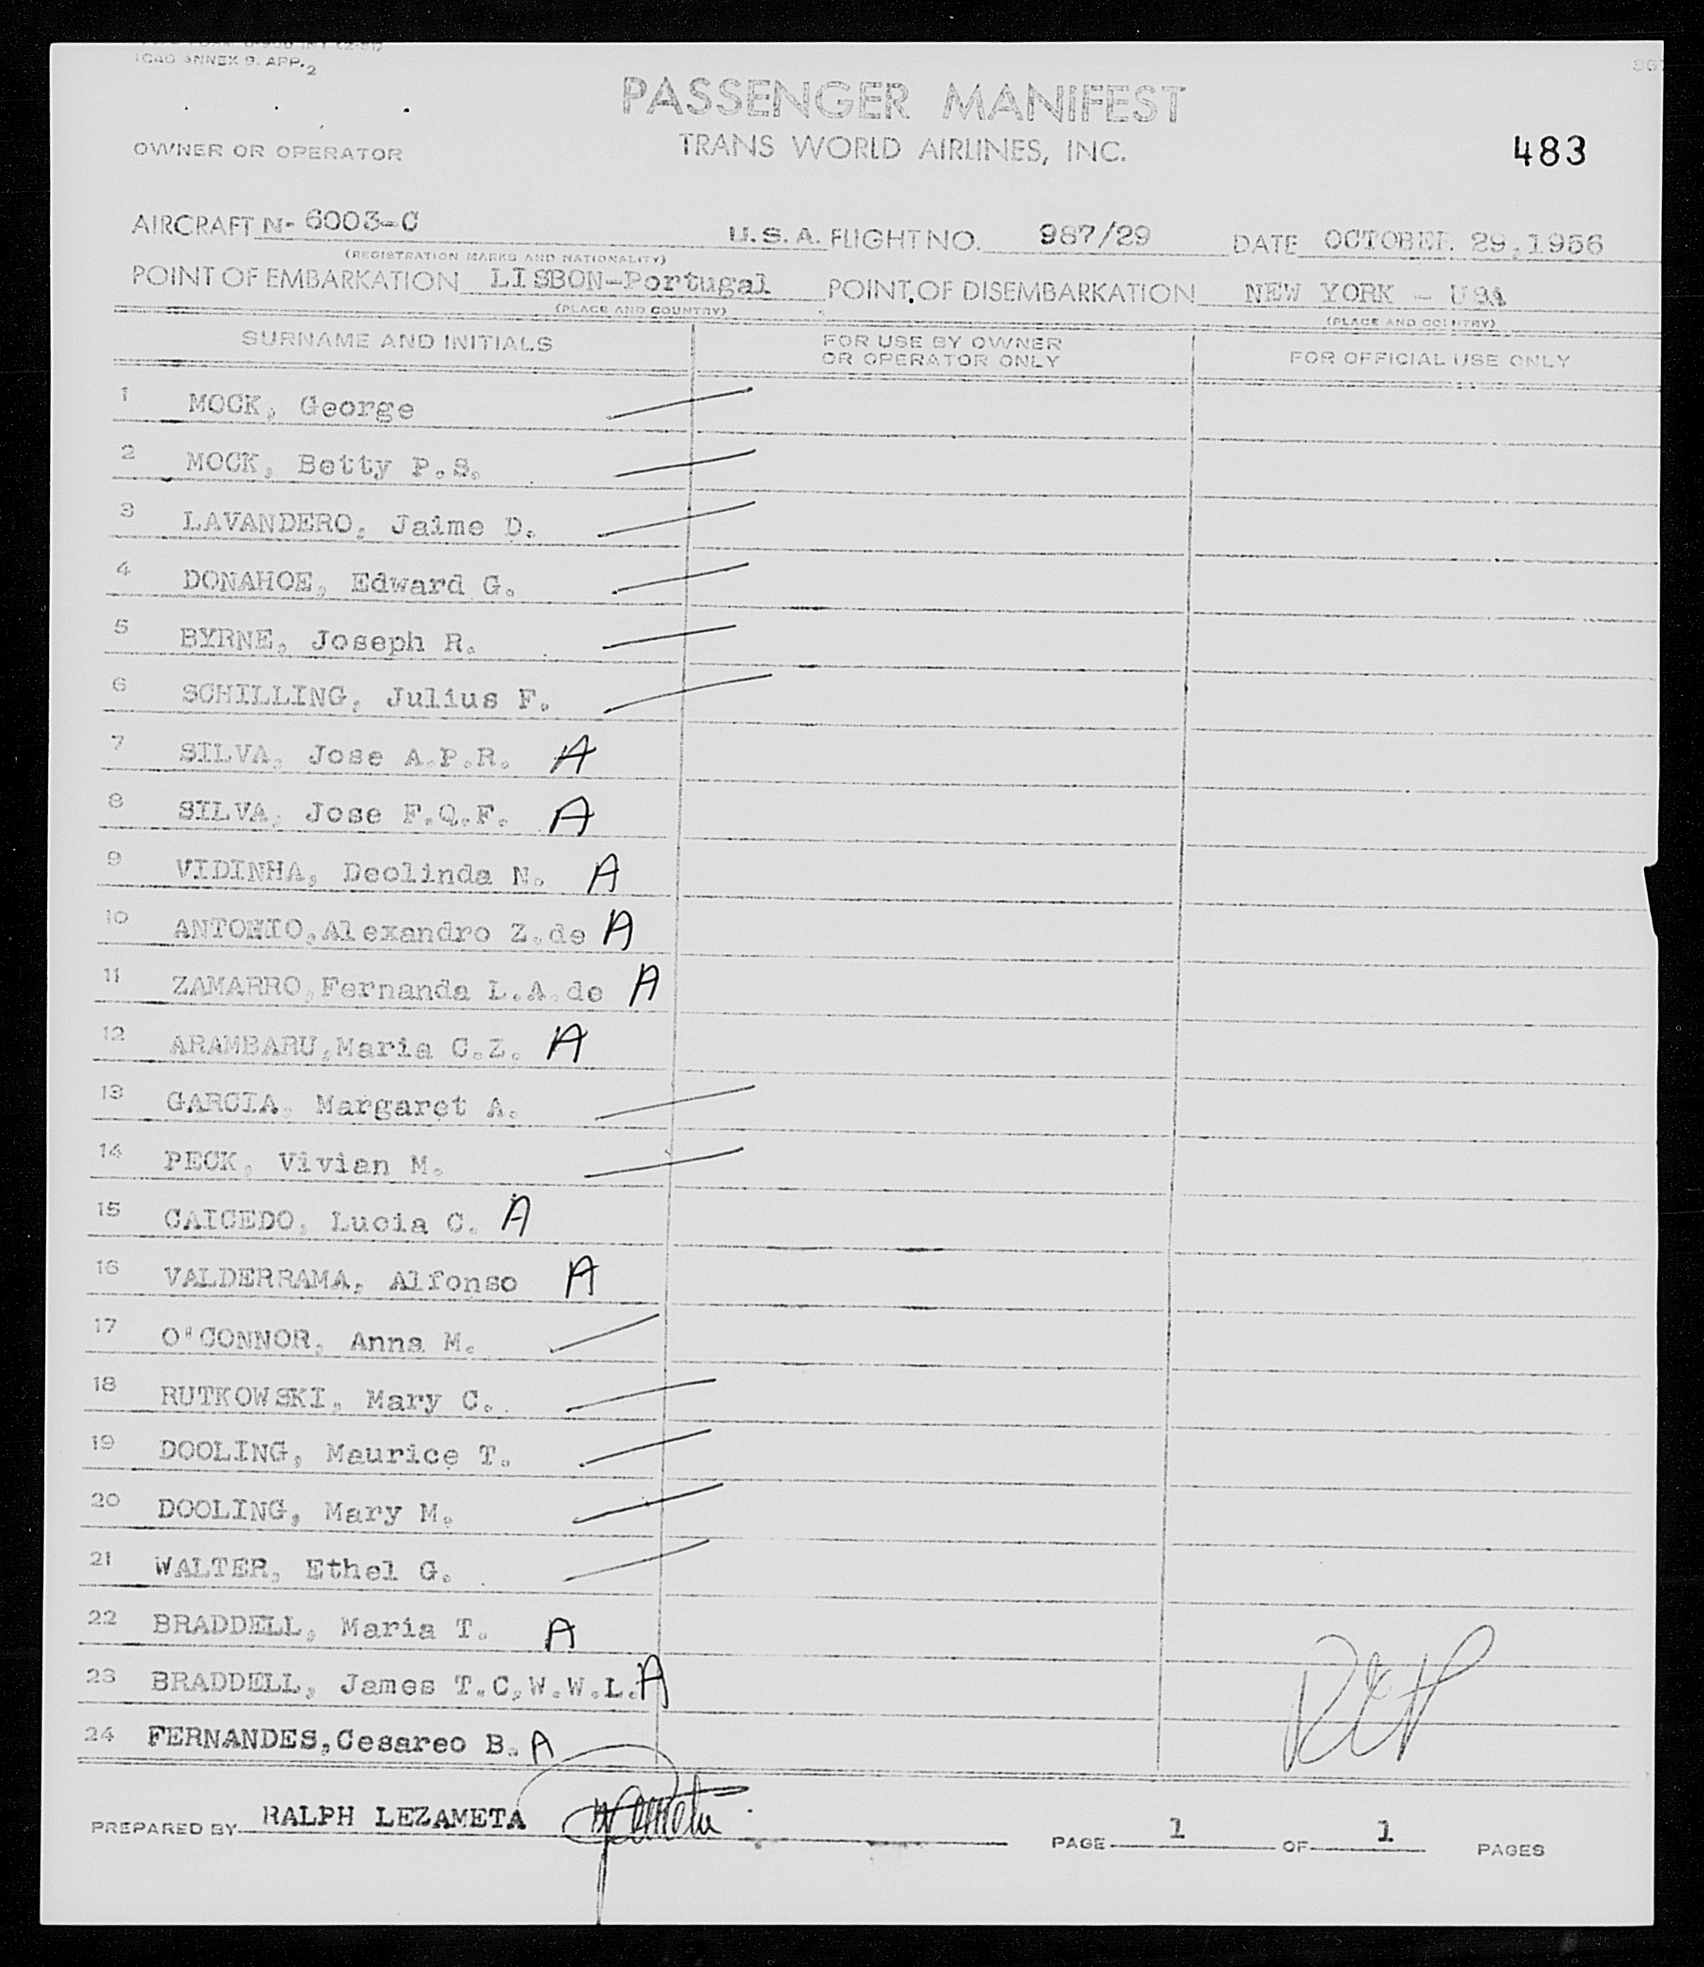 ICAO ANNEX 9. APP. 2
PASSENGER MANIFEST
TRANS WORLD AIRLINES, INC.
OWNER OR OPERATOR
483
AIRCRAFT N- 6003-C U.S.A. FLIGHT NO. 987/29 DATE OCTOBER. 29.1956
(REGISTRATION MARKS AND NATIONALITY)
POINT OF EMBARKATION LISBON-Portugal POINT OF DISEMBARKATION NEW YORK - USA
(PLACE AND COUNTRY) (PLACE AND COUNTRY)
SURNAME AND INITIALS FOR USE BY OWNER OR OPERATOR ONLY FOR OFFICIAL USE ONLY
1 MOCK, George
2 MOCK, Betty P.S.
3 LAVANDERO, Jaime D.
4 DONAHOE, Edward G.
5 BYRNE, Joseph R.
6 SCHILLING, Julius F.
7 SILVA, Jose A.P.R. A
8 SILVA, Jose F.Q.F. A
9 VIDINHA, Deolinda N. A
10 ANTONIO,Alexandro Z.de A
11 ZAMARRO,Fernanda L.A.de A
12 ARAMBARU,Maria C.Z. A
13 GARCIA, Margaret A.
14 PECK, Vivian M.
15 CAICEDO, Lucia C. A
16 VALDERRAMA, Alfonso A
17 O'CONNOR, Anna M.
18 RUTKOWSKI, Mary C.
19 DOOLING, Maurice T.
20 DOOLING, Mary M.
21 WALTER, Ethel G.
22 BRADDELL, Maria T. A
23 BRADDELL, James T.C,W.W.L. A
24 FERNANDES,Cesareo B. A
PREPARED BY RALPH LEZAMETA PAGE 1 OF 1 PAGES